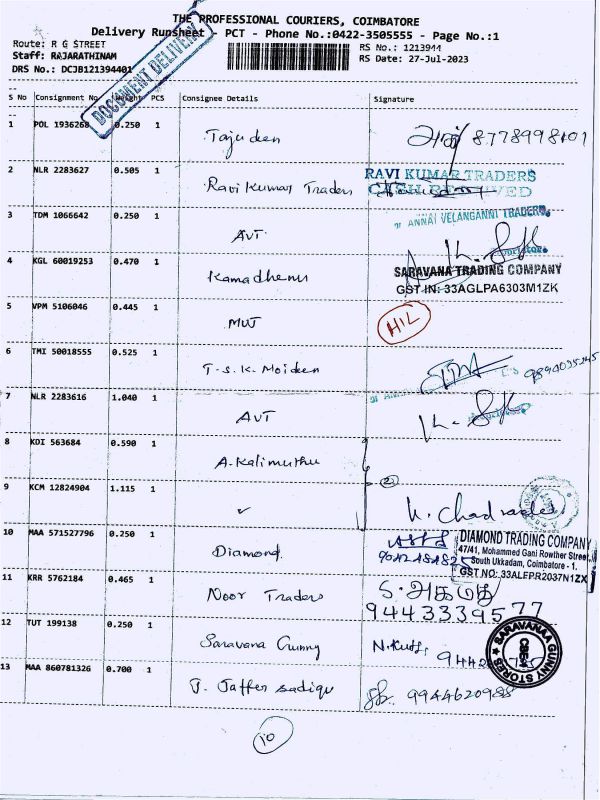 THE PROFESSIONAL COURIERS, COIMBATORE
Delivery Runsheet - PCT - Phone No.:0422-3505555 - Page No.:1
Route: R G STREET RS No.: 1213944
Staff: RAJARATHINAM RS Date: 27-Jul-2023
DRS No.: DCJB121394401
DOCUMENT DELIVERY
S No Consignment No Weight PCS Consignee Details Signature
1 POL 1936268 0.250 1 Tajudeen 8778998101
2 NLR 2283627 0.505 1 Ravi Kumar Traders RAVI KUMAR TRADERS
3 TDM 1066642 0.250 1 AVT. ANNAI VELANGANNI TRADERS,
4 KGL 60019253 0.470 1 Kamadhenu SARAVANA TRADING COMPANY
GST IN: 33AGLPA6303M1ZK
5 VPM 5106046 0.445 1 MUT HIL
6 TMI 50018555 0.525 1 T.S.K. Moideen
7 NLR 2283616 1.040 1 AVT
8 KDI 563684 0.590 1 A.Kalimuthu
9 KCM 12824904 1.115 1 ✓ 2
10 MAA 571527796 0.250 1 Diamond. DIAMOND TRADING COMPANY
47/41, Mohammed Gani Rowther Street,
South Ukkadam, Coimbatore - 1.
GST NO: 33ALFPR2037N1ZX
11 KRR 5762184 0.465 1 Noor Traders S. அகமது
9443339577
12 TUT 199138 0.250 1 Saravana Gunny
SARAVANAA GUNNY STORES
CBE-1
13 MAA 860781326 0.700 1 J. Jaffer sadiqu 9944620988
10